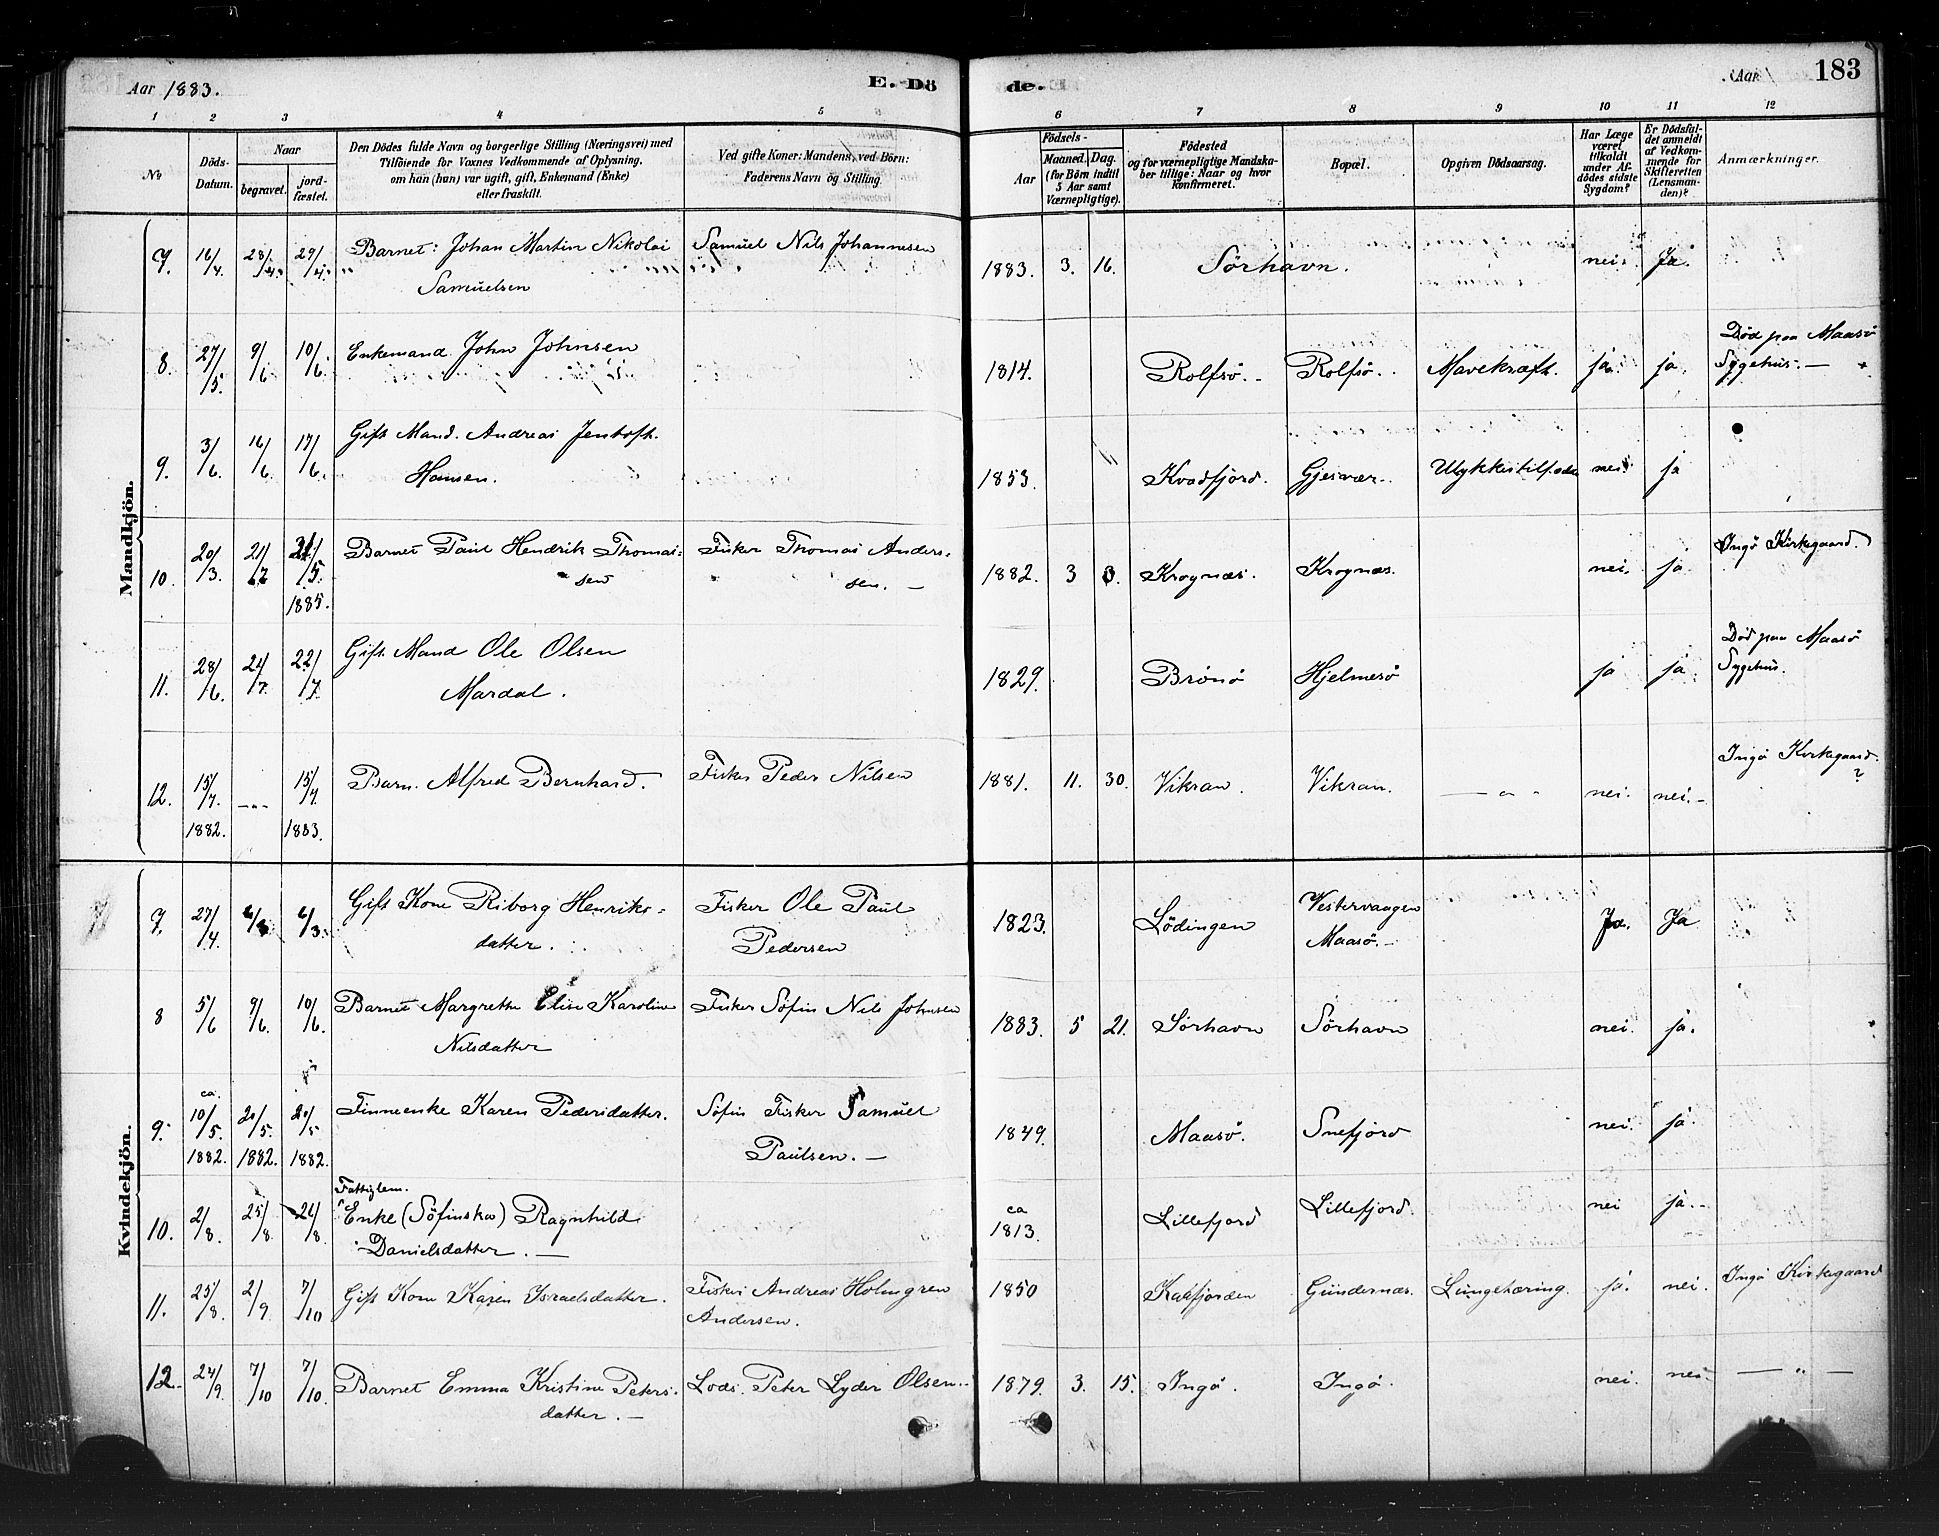 Aar 1883.
E. Dö
de.
Aar
183
1 2 3 4 5 6 7 8 9 10 11 12
No
Döds-Datum.
Naar
begravet.
jord-fæstet.
Den Dödes fulde Navn og borgerlige Stilling (Næringsvei) med
Tilföiende for Voxnes Vedkommende af Oplysning,
om han (hun) var ugift, gift, Enkemand (Enke)
eller fraskilt.
Ved gifte Koner: Mandens, ved Börn:
Faderens Navn og Stilling
Födsels-
Aar
Maaned. Dag.
(for Börn indtil
5 Aar samt
Værnepligtige).
Födested
og for værnepligtige Mandska-
ber tillige: Naar og hvor
konfirmeret.
Bopæl.
Opgiven Dödsaarsag.
Har Læge
været
tilkaldt
under Af-
dödes sidste
Sygdom?
Er Dödsfal-
det anmeldt
af Vedkom-
mende for
Skifteretten
(Lensman-
den)?
Anmærkninger.
Mandkjön.
7. 16/4. 28/4. 29/4. Barnet: Johan Martin Nikolai Samuel Nils Johannesen 1883. 3. 16. Sörhavn. nei. Ja.
Samuelsen
8. 27/5. 9/6 10/6. Enkemand John Johnsen 1814. Rolfsö. Rolfsö. Mavekræft. ja. ja. Död paa Maasö
Sygehus.
9. 3/6. 16/6. 17/6. Gift Mand. Andreas Jentoft 1853. Kvadfjord. Gjesvær. Ulykkestilfælde nei. ja
Hansen.
10. 20/3. 21/7 21/5. 1885. Barnet Paul Hendrik Thomas- Fisker Thomas Anders- 1882. 3 3. Krognæs. Krognæs. nei. ja Ingö Kirkegaard.
sen sen.
11. 28/6. 24/7. 22/7. Gift Mand Ole Olsen 1829. Brönö Hjelmesö ja ja. Död paa Maasö
Mardal. Sygehus.
12. 15/7. 1882. 15/7 1883. Barn. Alfred Bernhard. Fisker Peder Nilsen 1881. 11. 30. Vikran. Vikran. nei. nei. Ingö Kirkegaard.
?
Kvindekjön.
7. 27/4. 6/3. Gift Kone Riborg Henriks- Fisker Ole Paul 1823. Lödingen Vestervaagen Ja. Ja
datter. Pedersen Maasö.
8 5/6 9/6. 10/6. Barnet Margrethe Elise Karoline Fisker Söfin Nils Johnsen 1883. 5 21. Sörhavn Sörhavn nei. ja.
Nilsdatter
9. ca. 10/5. 1882. 20/5. 1882. 20/5 1882. Finneenke Karen Pedersdatter. Söfin Fisker Samuel 1849. Maasö. Snefjord nei. ja.
Paulsen.
Fattiglem.
10. 2/8. 25/8 26/8 Enke (Söfinska) Ragnhild ca 1813. Lillefjord Lillefjord. nei ja.
Danielsdatter.
11. 25/8. 2/9. 7/10 Gift Kone Karen Israelsdatter. Fisker Andreas Holmgren 1850 Kaafjorden Gundernæs. Lungetæring. ja. nei. Ingö Kirkegaard
Andersen.
12. 24/9. 7/10 7/10. Barnet Emma Kristine Peters- Lods. Peter Lyder Olsen. 1879. 3. 15. Ingö. Ingö. nei. nei. — „ —
datter.